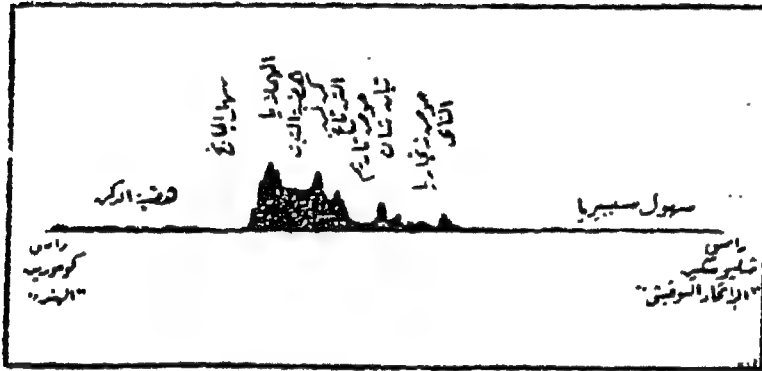 سهل الجانج
الهملايا
هضبة التبت
التن تاغ
حوض تاريم
تيان شان
حوض زنجاريا
التاى
هضبة الدكن
سهول سيبيريا
راس
كومورين
"الهند"
راس
"الإتحاد السوفيتى"